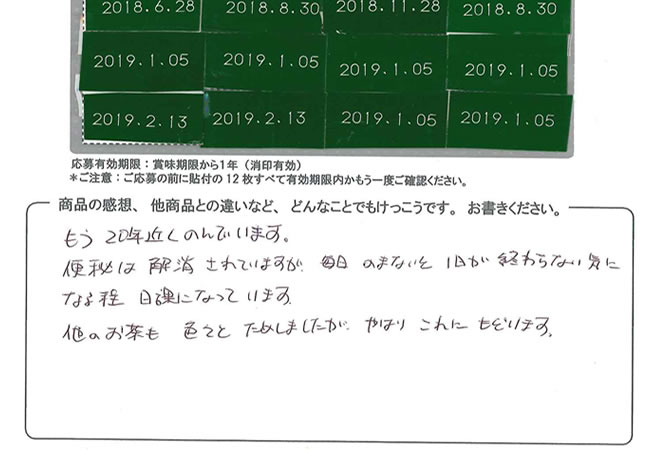 2018.6.28 2018.8.30 2018.11.28 2018.8.30
2019.1.05 2019.1.05 2019.1.05 2019.1.05
2019.2.13 2019.2.13 2019.1.05 2019.1.05
応募有効期限：賞味期限から1年（消印有効）
＊ご注意：ご応募の前に貼付の12枚すべて有効期限内かもう一度ご確認ください。
商品の感想、他商品との違いなど、どんなことでもけっこうです。お書きください。
もう20年近くのんでいます。
便秘は解消されていますが毎日のまないと1日が終わらない気に
なる程日課になっています。
他のお茶も色々とためしましたがやはりこれにもどります。